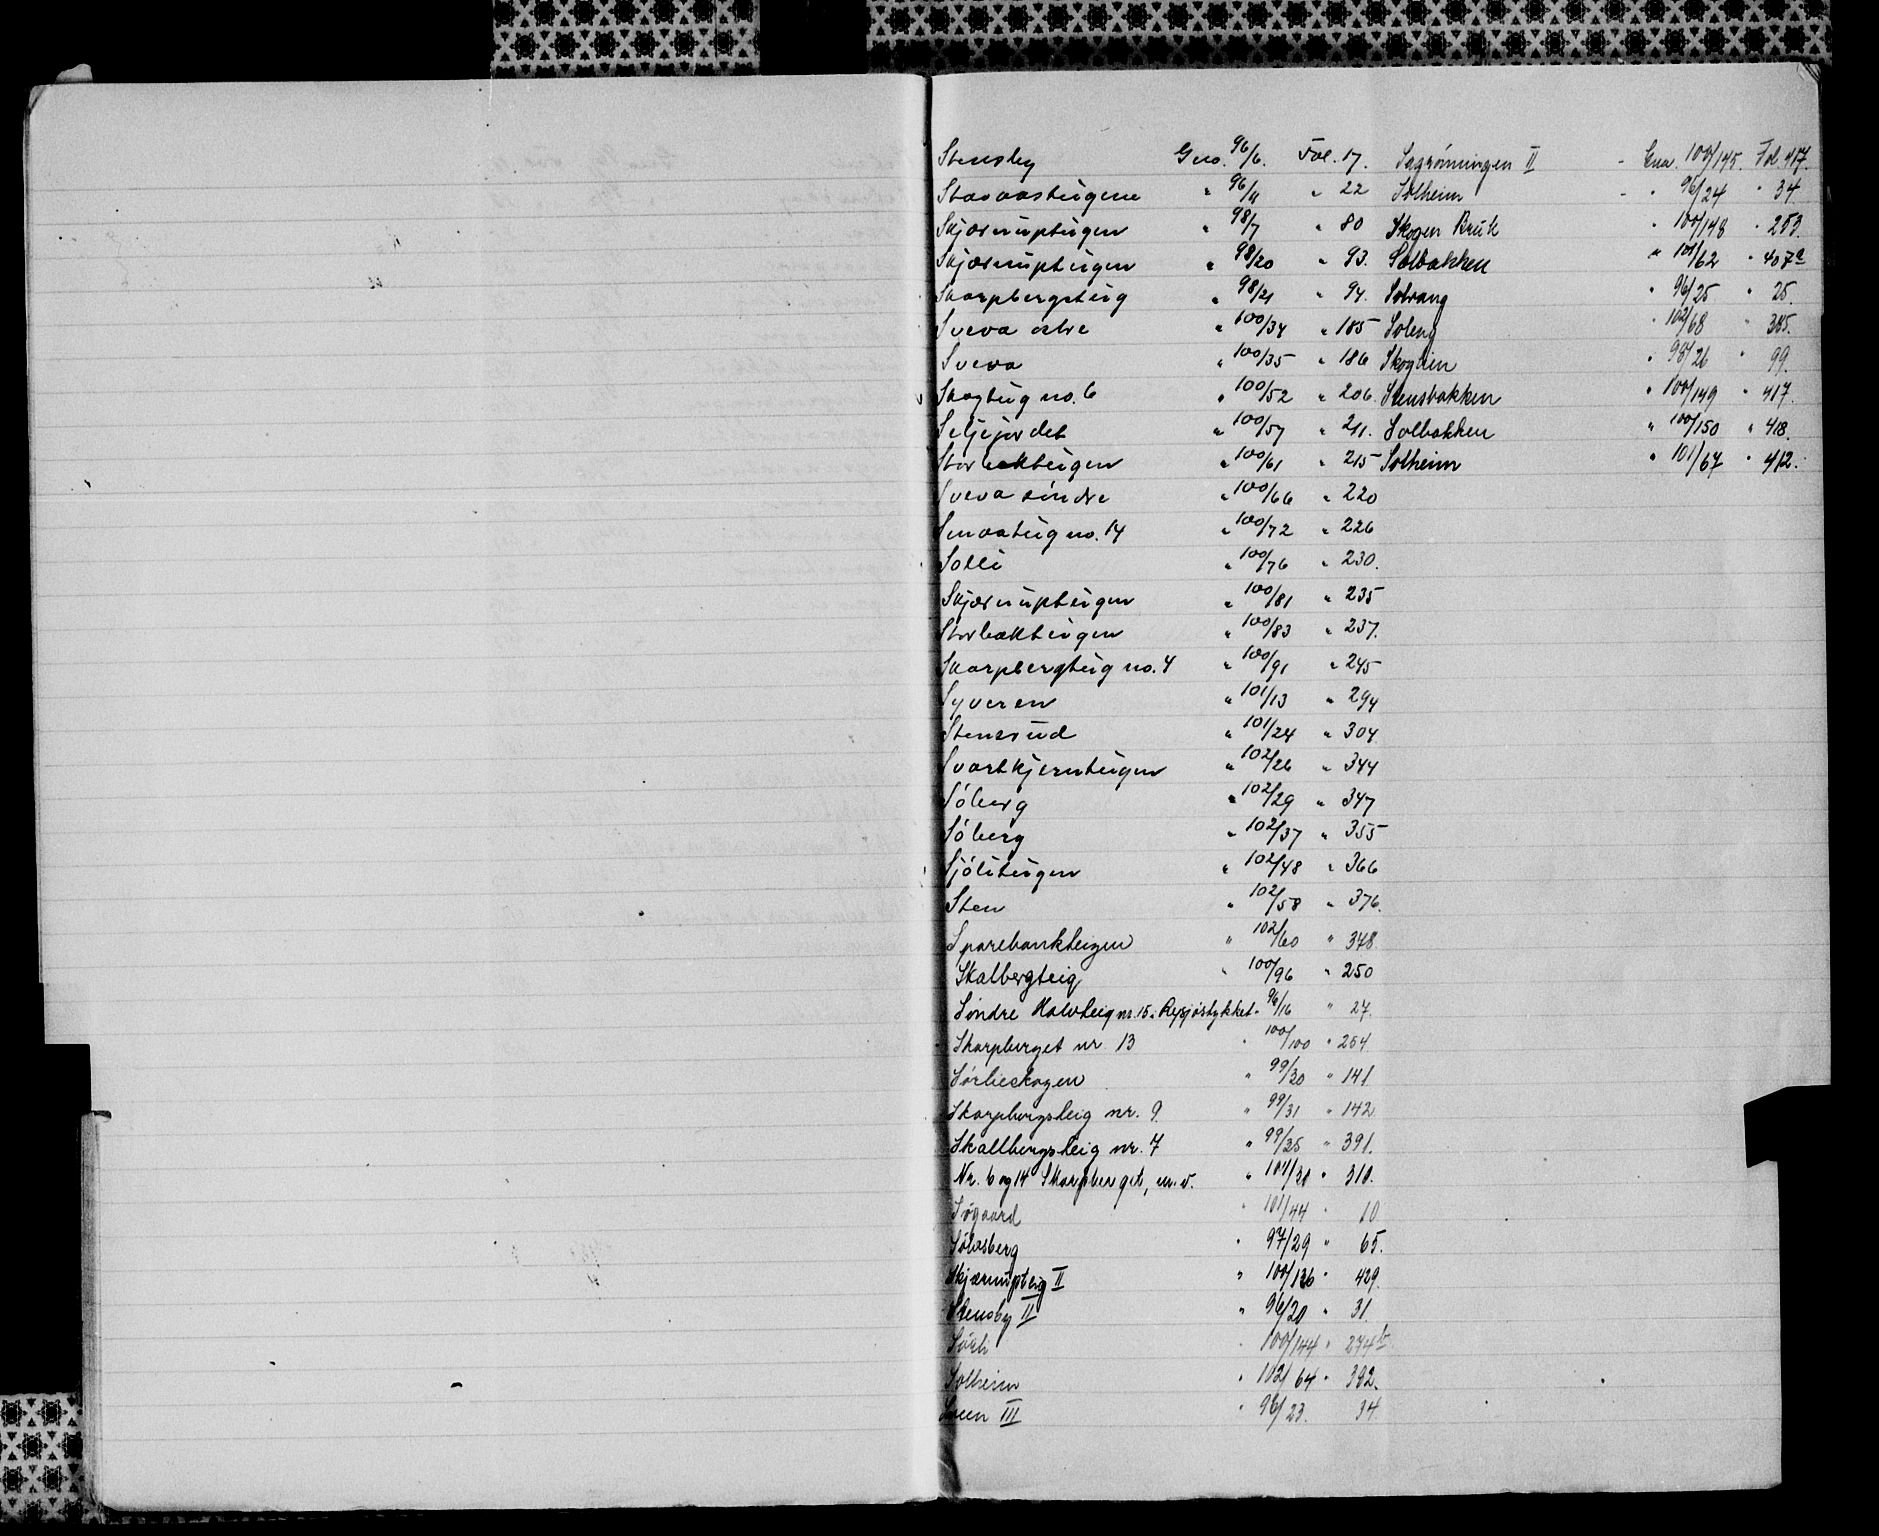 Stensby Gno. 96/6. Fol. 17.
Stavaasteigene " 96/11 " 22
Skjærrupteigen " 98/7 " 80
Skjærrupteigen " 98/20 " 93.
Skarpbergsteig " 98/21 " 94.
Sveva østre " 100/34 " 185
Sveva " 100/35 " 186
Skogteig no. 6 " 100/52 " 206.
Seljejordet " 100/57 " 211.
Storbækteigen " 100/61 " 215
Sveva söndre " 100/66 " 220
no. 14 " 100/72 " 226
Solli " 100/76 " 230.
Skjærrupteigen " 100/81 " 235
Storbækteigen " 100/83 " 237.
Skarpbergteig no. 4 " 100/91 " 245
Syveren " 101/13 " 294
Stensrud " 101/24 " 304
Svartkjernteigen " 102/26 " 344
Söberg " 102/29 " 347
Söberg " 102/37 " 355
Sjöliteigen " 102/48 " 366
Sten " 102/58 " 376.
Sparebankteigen " 102/60 " 348.
Skalbergteig " 100/96 " 250
Søndre Halvteig nr. 15. Røsjöstykket " 96/16 " 27.
Skarpberget nr. 13 " 100/100 " 254
Sørlieskogen " 99/30 " 141
Skarpbergsteig nr. 9. " 99/31 " 142
Skallbergsteig nr. 7 " 99/35 " 391.
Nr. 6 og 14 Skarpberget, m. v. " 101/30 " 310.
Søgaard " 101/44 " 10
Sølvsberg " 97/29 " 65.
Skjærrupteig II " 100/136 " 429.
Stensby II " 96/20 " 31
Sørli " 100/144 " 274b
Solheim " 102/64 " 392.
Sveen III " 96/23. 34
Sagrønningen II - Gno. 100/145. Fol 417.
Solheim - " 96/24 " 34.
Skogen Bruk " 100/148 " 253.
Solbakken " 101/62 " 407a
Solvang " 96/25 " 25.
Soleng " 102/68 " 385.
Skogheim " 98/26 " 99.
Stensbakken " 100/149 " 417.
Solbakken " 100/150 " 418.
Solheim " 101/67 " 412.